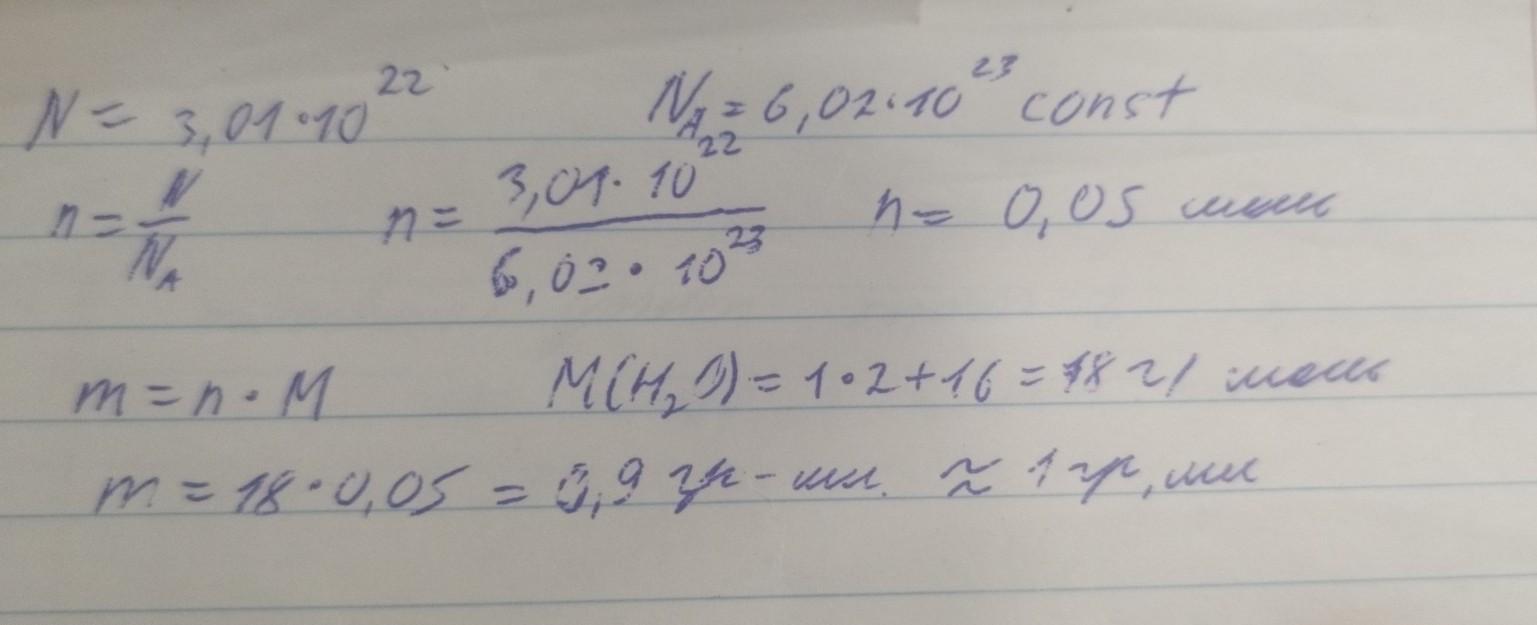 N = 3,01·10²² N_A = 6,02·10²³ const
n = N/N_A n = 3,01·10²²/6,02·10²³ n = 0,05 моль
m = n·M M(H₂O) = 1·2+16 = 18 г/моль
m = 18·0,05 = 0,9 гр-мл. ≈ 1 гр, мл